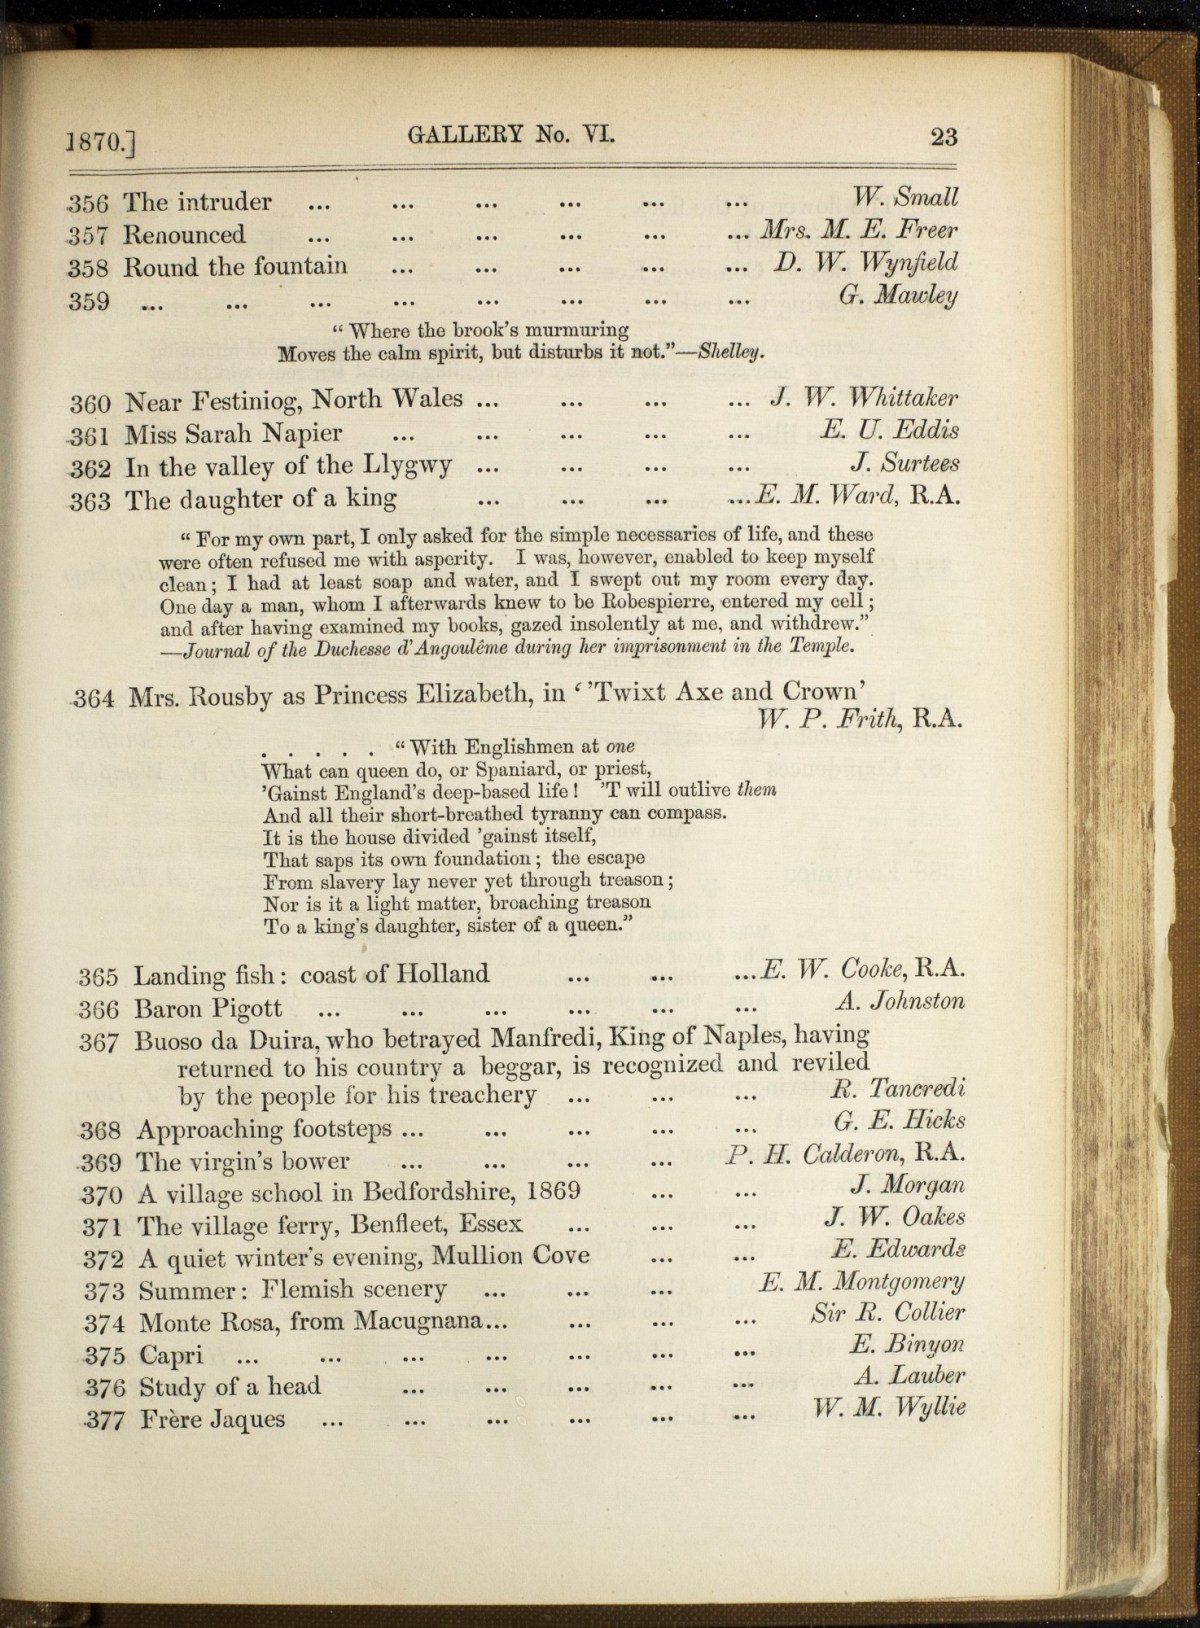 1870.] GALLERY No. VI. 23
356 The intruder ... ... ... ... ... ... W. Small
357 Renounced ... ... ... ... ... ... Mrs. M. E. Freer
358 Round the fountain ... ... ... ... ... D. W. Wynfield
359 ... ... ... ... ... ... ... ... G. Mawley
“ Where the brook’s murmuring
Moves the calm spirit, but disturbs it not.”—Shelley.
360 Near Festiniog, North Wales ... ... ... ... J. W. Whittaker
361 Miss Sarah Napier ... ... ... ... ... E. U. Eddis
362 In the valley of the Llygwy ... ... ... ... J. Surtees
363 The daughter of a king ... ... ... ... E. M. Ward, R.A.
“ For my own part, I only asked for the simple necessaries of life, and these
were often refused me with asperity. I was, however, enabled to keep myself
clean ; I had at least soap and water, and I swept out my room every day.
One day a man, whom I afterwards knew to be Robespierre, entered my cell ;
and after having examined my books, gazed insolently at me, and withdrew.”
—Journal of the Duchesse d’Angoulême during her imprisonment in the Temple.
364 Mrs. Rousby as Princess Elizabeth, in ‘ ’Twixt Axe and Crown’
W. P. Frith, R.A.
. . . . . . “ With Englishmen at one
What can queen do, or Spaniard, or priest,
’Gainst England’s deep-based life ! ’T will outlive them
And all their short-breathed tyranny can compass.
It is the house divided ’gainst itself,
That saps its own foundation ; the escape
From slavery lay never yet through treason ;
Nor is it a light matter, broaching treason
To a king’s daughter, sister of a queen.”
365 Landing fish : coast of Holland ... ... ... E. W. Cooke, R.A.
366 Baron Pigott ... ... ... ... ... ... A. Johnston
367 Buoso da Duira, who betrayed Manfredi, King of Naples, having
returned to his country a beggar, is recognized and reviled
by the people for his treachery ... ... ... R. Tancredi
368 Approaching footsteps ... ... ... ... ... G. E. Hicks
369 The virgin’s bower ... ... ... ... P. H. Calderon, R.A.
370 A village school in Bedfordshire, 1869 ... ... J. Morgan
371 The village ferry, Benfleet, Essex ... ... ... J. W. Oakes
372 A quiet winter’s evening, Mullion Cove ... ... E. Edwards
373 Summer : Flemish scenery ... ... ... E. M. Montgomery
374 Monte Rosa, from Macugnana... ... ... ... Sir R. Collier
375 Capri ... ... ... ... ... ... ... E. Binyon
376 Study of a head ... ... ... ... ... A. Lauber
377 Frère Jaques ... ... ... ... ... ... W. M. Wyllie